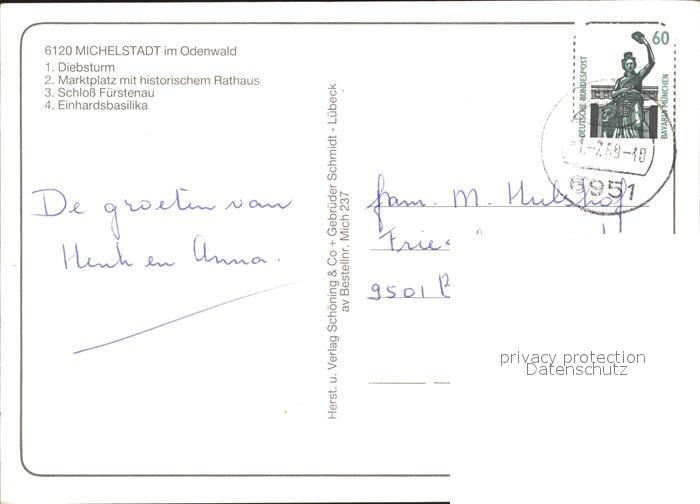 6120 MICHELSTADT im Odenwald
1. Diebsturm
2. Marktplatz mit historischem Rathaus
3. Schloß Fürstenau
4. Einhardsbasilika
De groeten van
Henk en Anna.
Herst. u. Verlag Schöning & Co + Gebrüder Schmidt - Lübeck
av Bestellnr. Mich 237
DEUTSCHE BUNDESPOST
60
BAVARIA MÜNCHEN
6951
fam. M. Hulshof
9501
privacy protection
Datenschutz